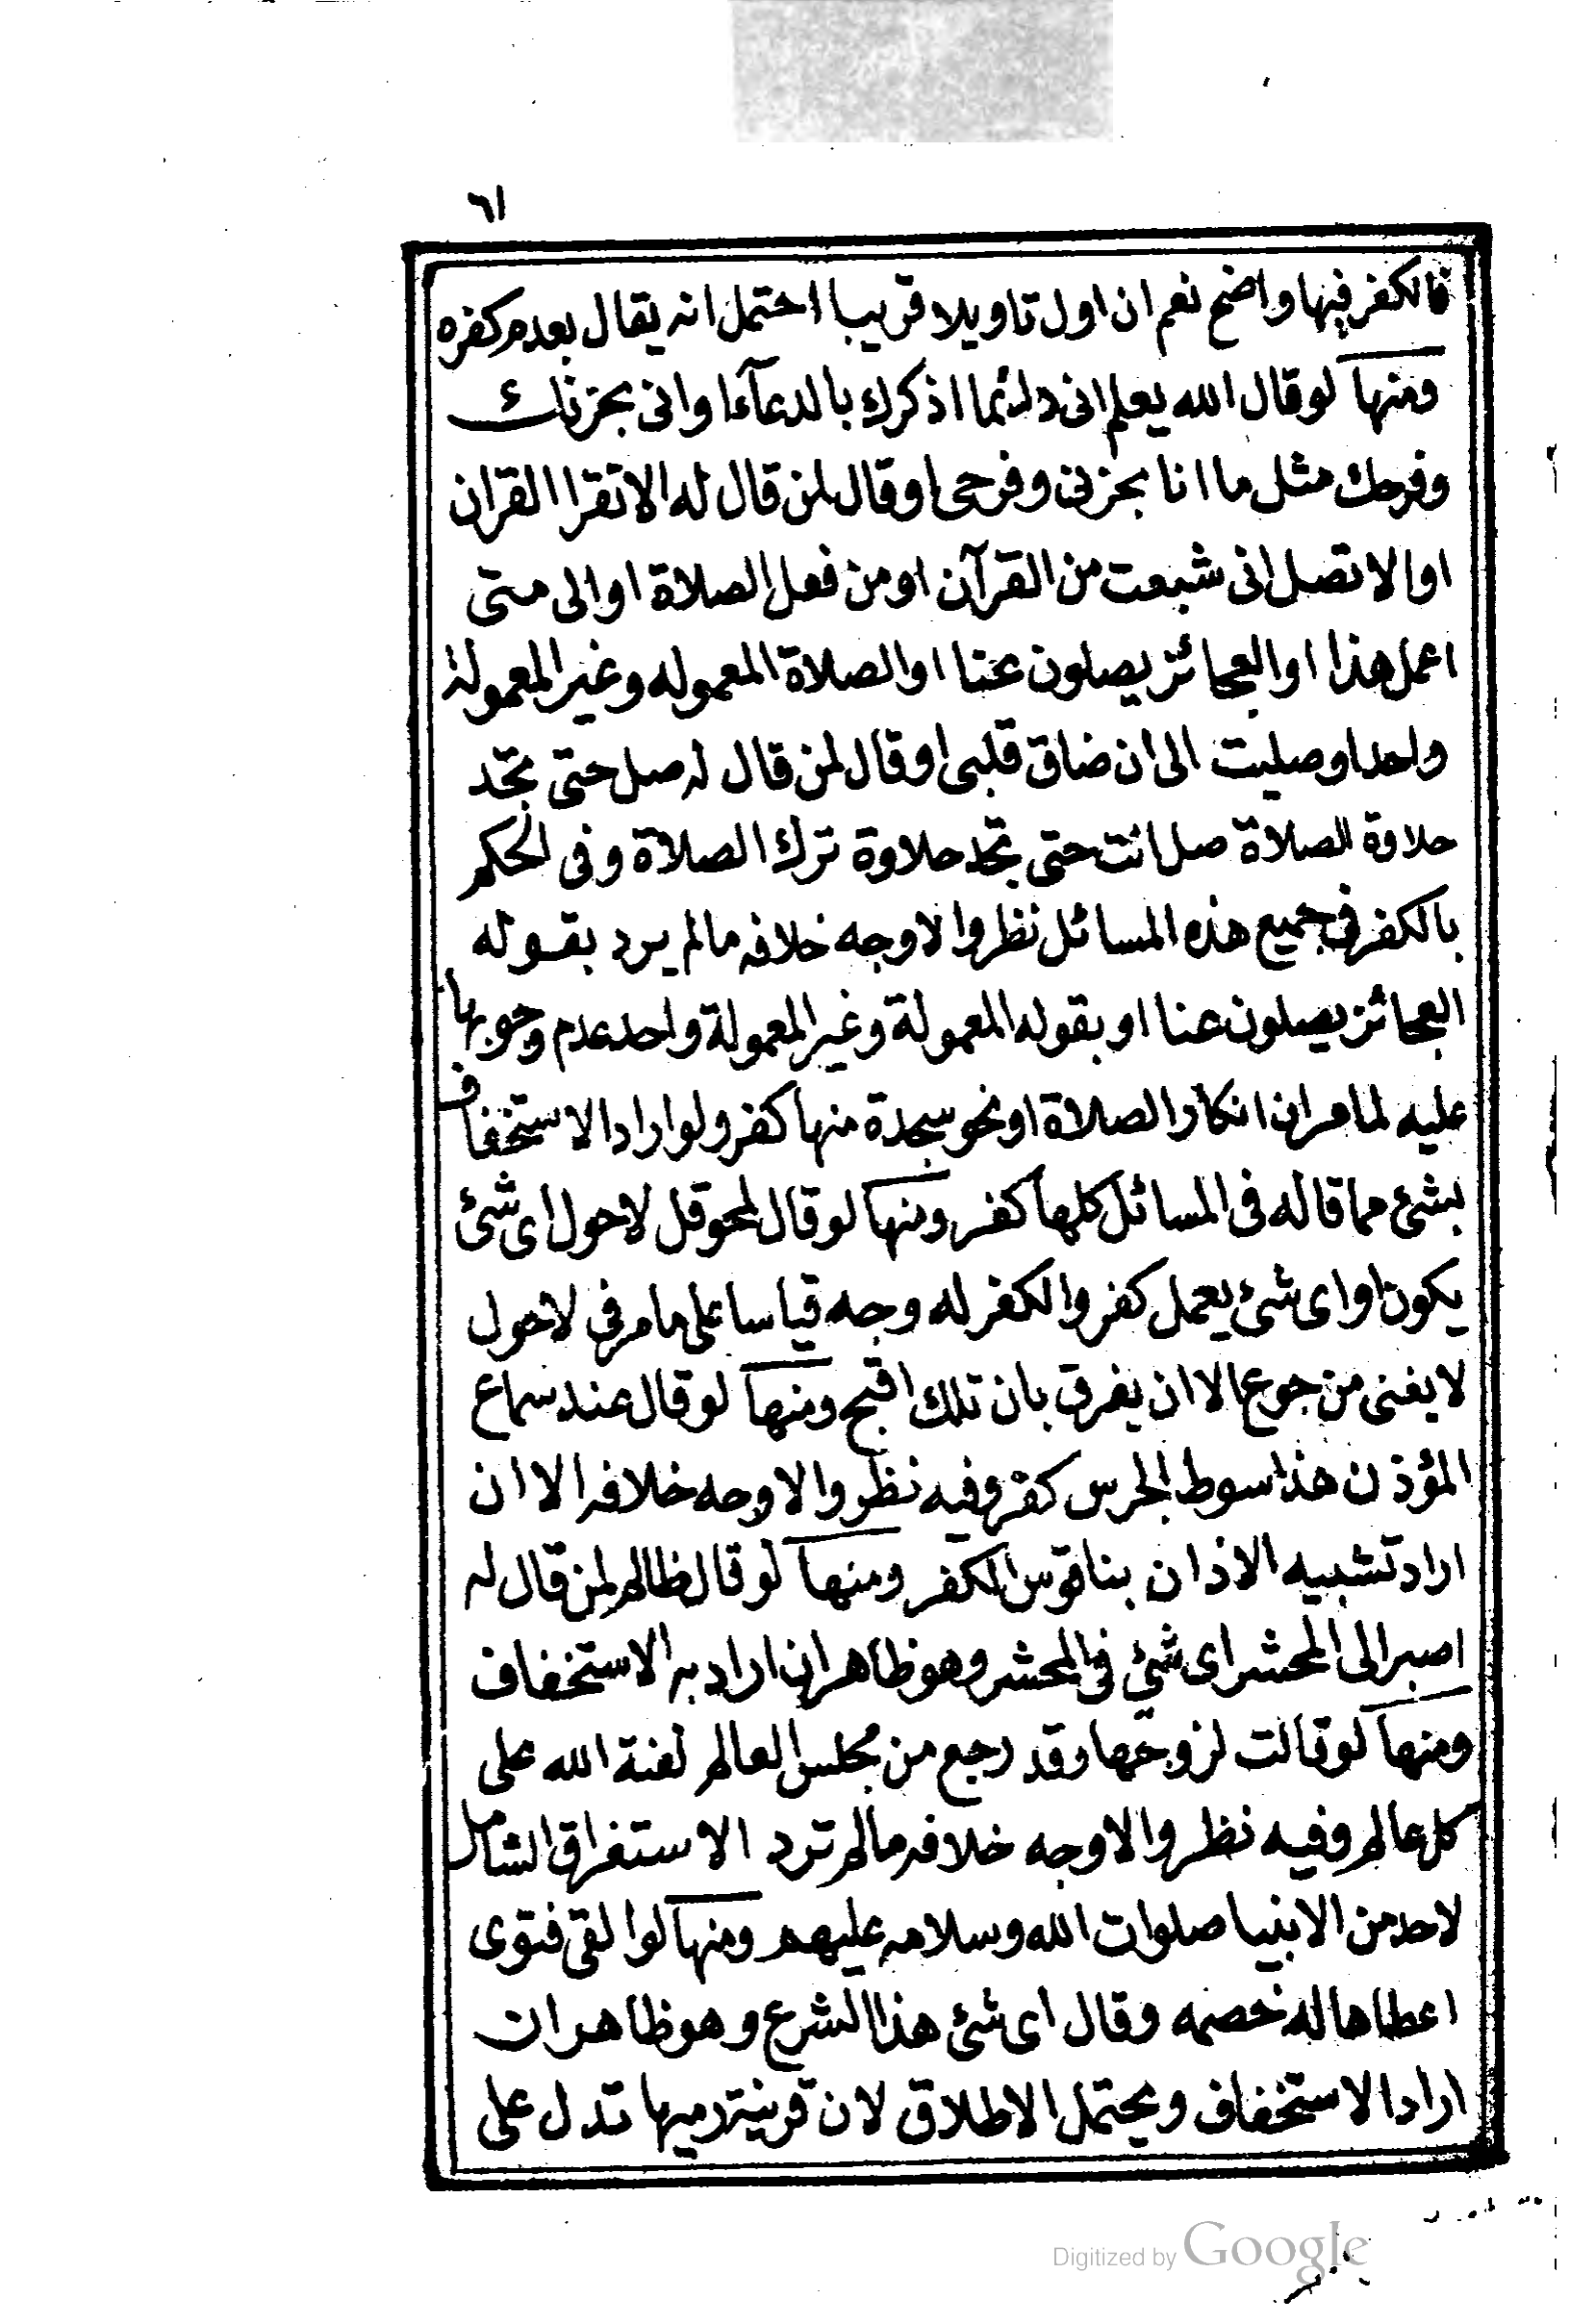 ٦١
فالكفر فيها واضح نعم ان اول تاويلا قريبا احتمل انه يقال بعدم كفره
ومنها لو قال الله يعلم انى دائما اذكرك بالدعآءا وانى بحزنك
وفرحك مثل ما انا بحزنى وفرحى او قال لمن قال له الا تقرا القران
او الا تصل انى شبعت من القرآن او من فعل الصلاة او الى متى
اعمل هذا او العجائز يصلون عنا او الصلاة المعموله وغير المعمولة
واحد او صليت الى ان ضاق قلبى او قال لمن قال له صل حتى تجد
حلاوة الصلاة صل انت حتى تجد حلاوة ترك الصلاة وفى الحكم
بالكفر فى جميع هذه المسائل نظر والاوجه خلافه مالم يرد بقوله
العجائز يصلون عنا او بقوله المعمولة وغير المعمولة واحد عدم وجوبها
عليه لما مر ان انكار الصلاة او نحو سجدة منها كفر ولو اراد الاستخفاف
بشئ مما قاله فى المسائل كلها كفر ومنها لو قال لمحوقل لاحول اى شئ
يكون او اى شئ يعمل كفر والكفر له وجه قياسا على مامر فى لاحول
لا يغنى من جوع الا ان يفرق بان تلك اقبح ومنها لو قال عند سماع
المؤذن هذا سوط الجرس كفر وفيه نظر والاوجه خلافه الا ان
اراد تشبيه الاذان بناقوس الكفر ومنها لو قال ظالم لمن قال له
اصبر الى المحشر اى شئ فى المحشر وهو ظاهر ان اراد به الاستخفاف
ومنها لو قالت لزوجها وقد رجع من مجلس العالم لعنة الله على
كل عالم وفيه نظر والاوجه خلافه مالم ترد الاستغراق الشامل
لاحد من الانبيا صلوات الله وسلامه عليهم ومنها لو القى فتوى
اعطاها له خصمه وقال اى شئ هذا الشرع وهو ظاهر ان
اراد الاستخفاف ويحتمل الاطلاق لان قرينة رميها تدل على
Digitized by Google